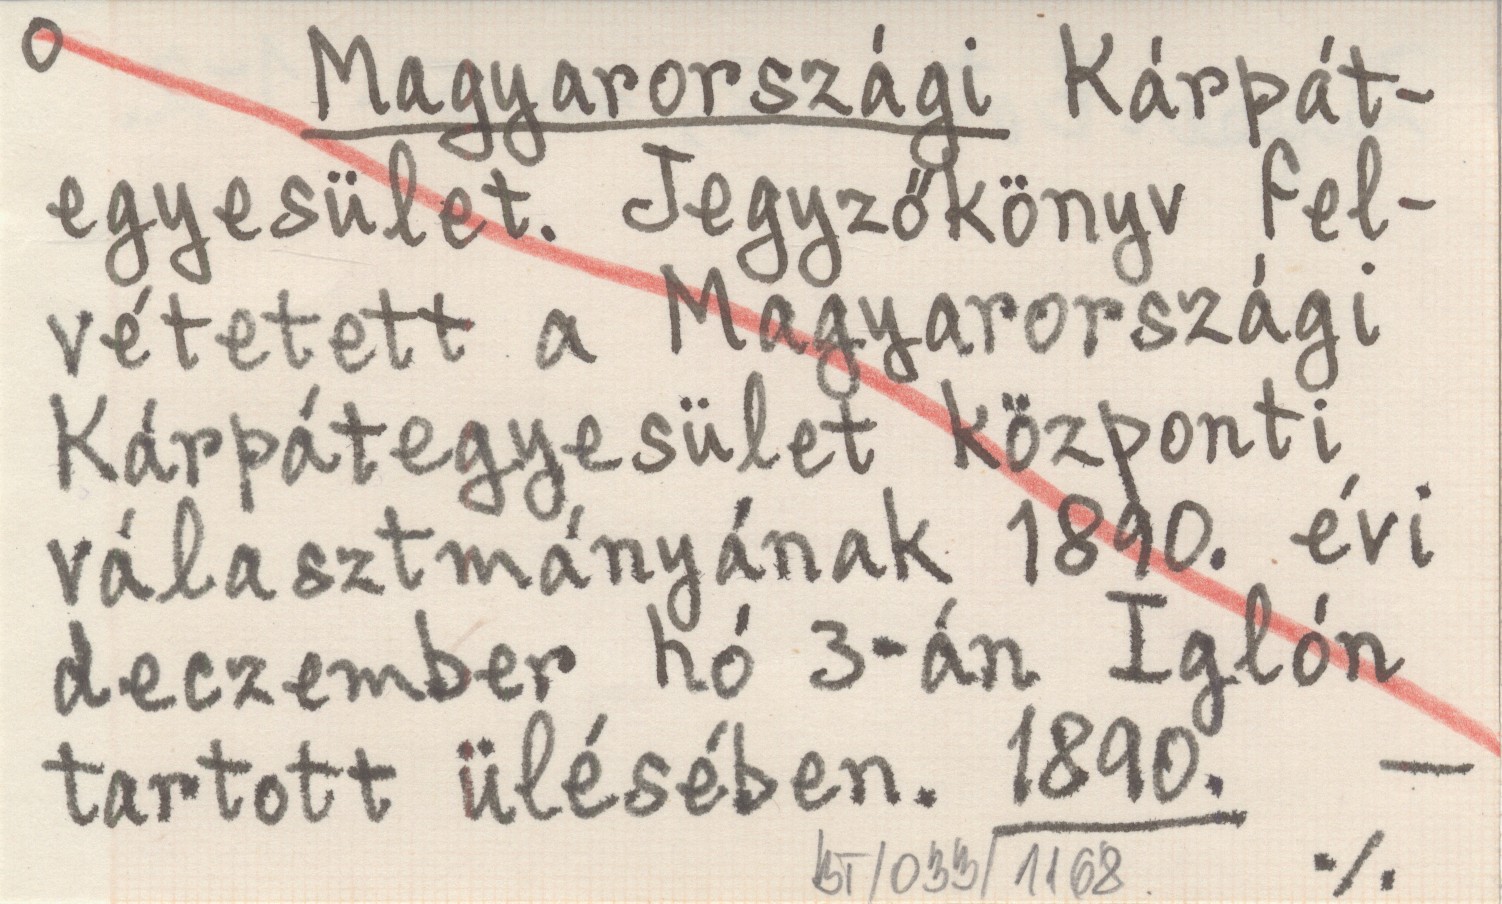 O Magyarországi Kárpát-
egyesület. Jegyzőkönyv fel-
vétetett a Magyarországi
Kárpátegyesület központi
választmányának 1890. évi
deczember hó 3-án Iglón
tartott ülésében. 1890. —
BT/033/1168. ·/.